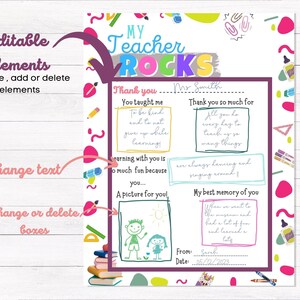 ditable
lements
e , add or delete
elements
MY
Teacher
ROCKS
Thank you Mr. Smith
You taught me
Thank you so much for
To be kind
and to not
give up while
learning
All you do
every day to
teach us so
many things
hange text
earning with you is
so much fun because
you...
are always dancing and
singing around!
hange or delete
boxes
A picture for you!
My best memory of you
When we went to
the museum and
had a lot of fun
and learned a
lot
From: Sarah
Date: